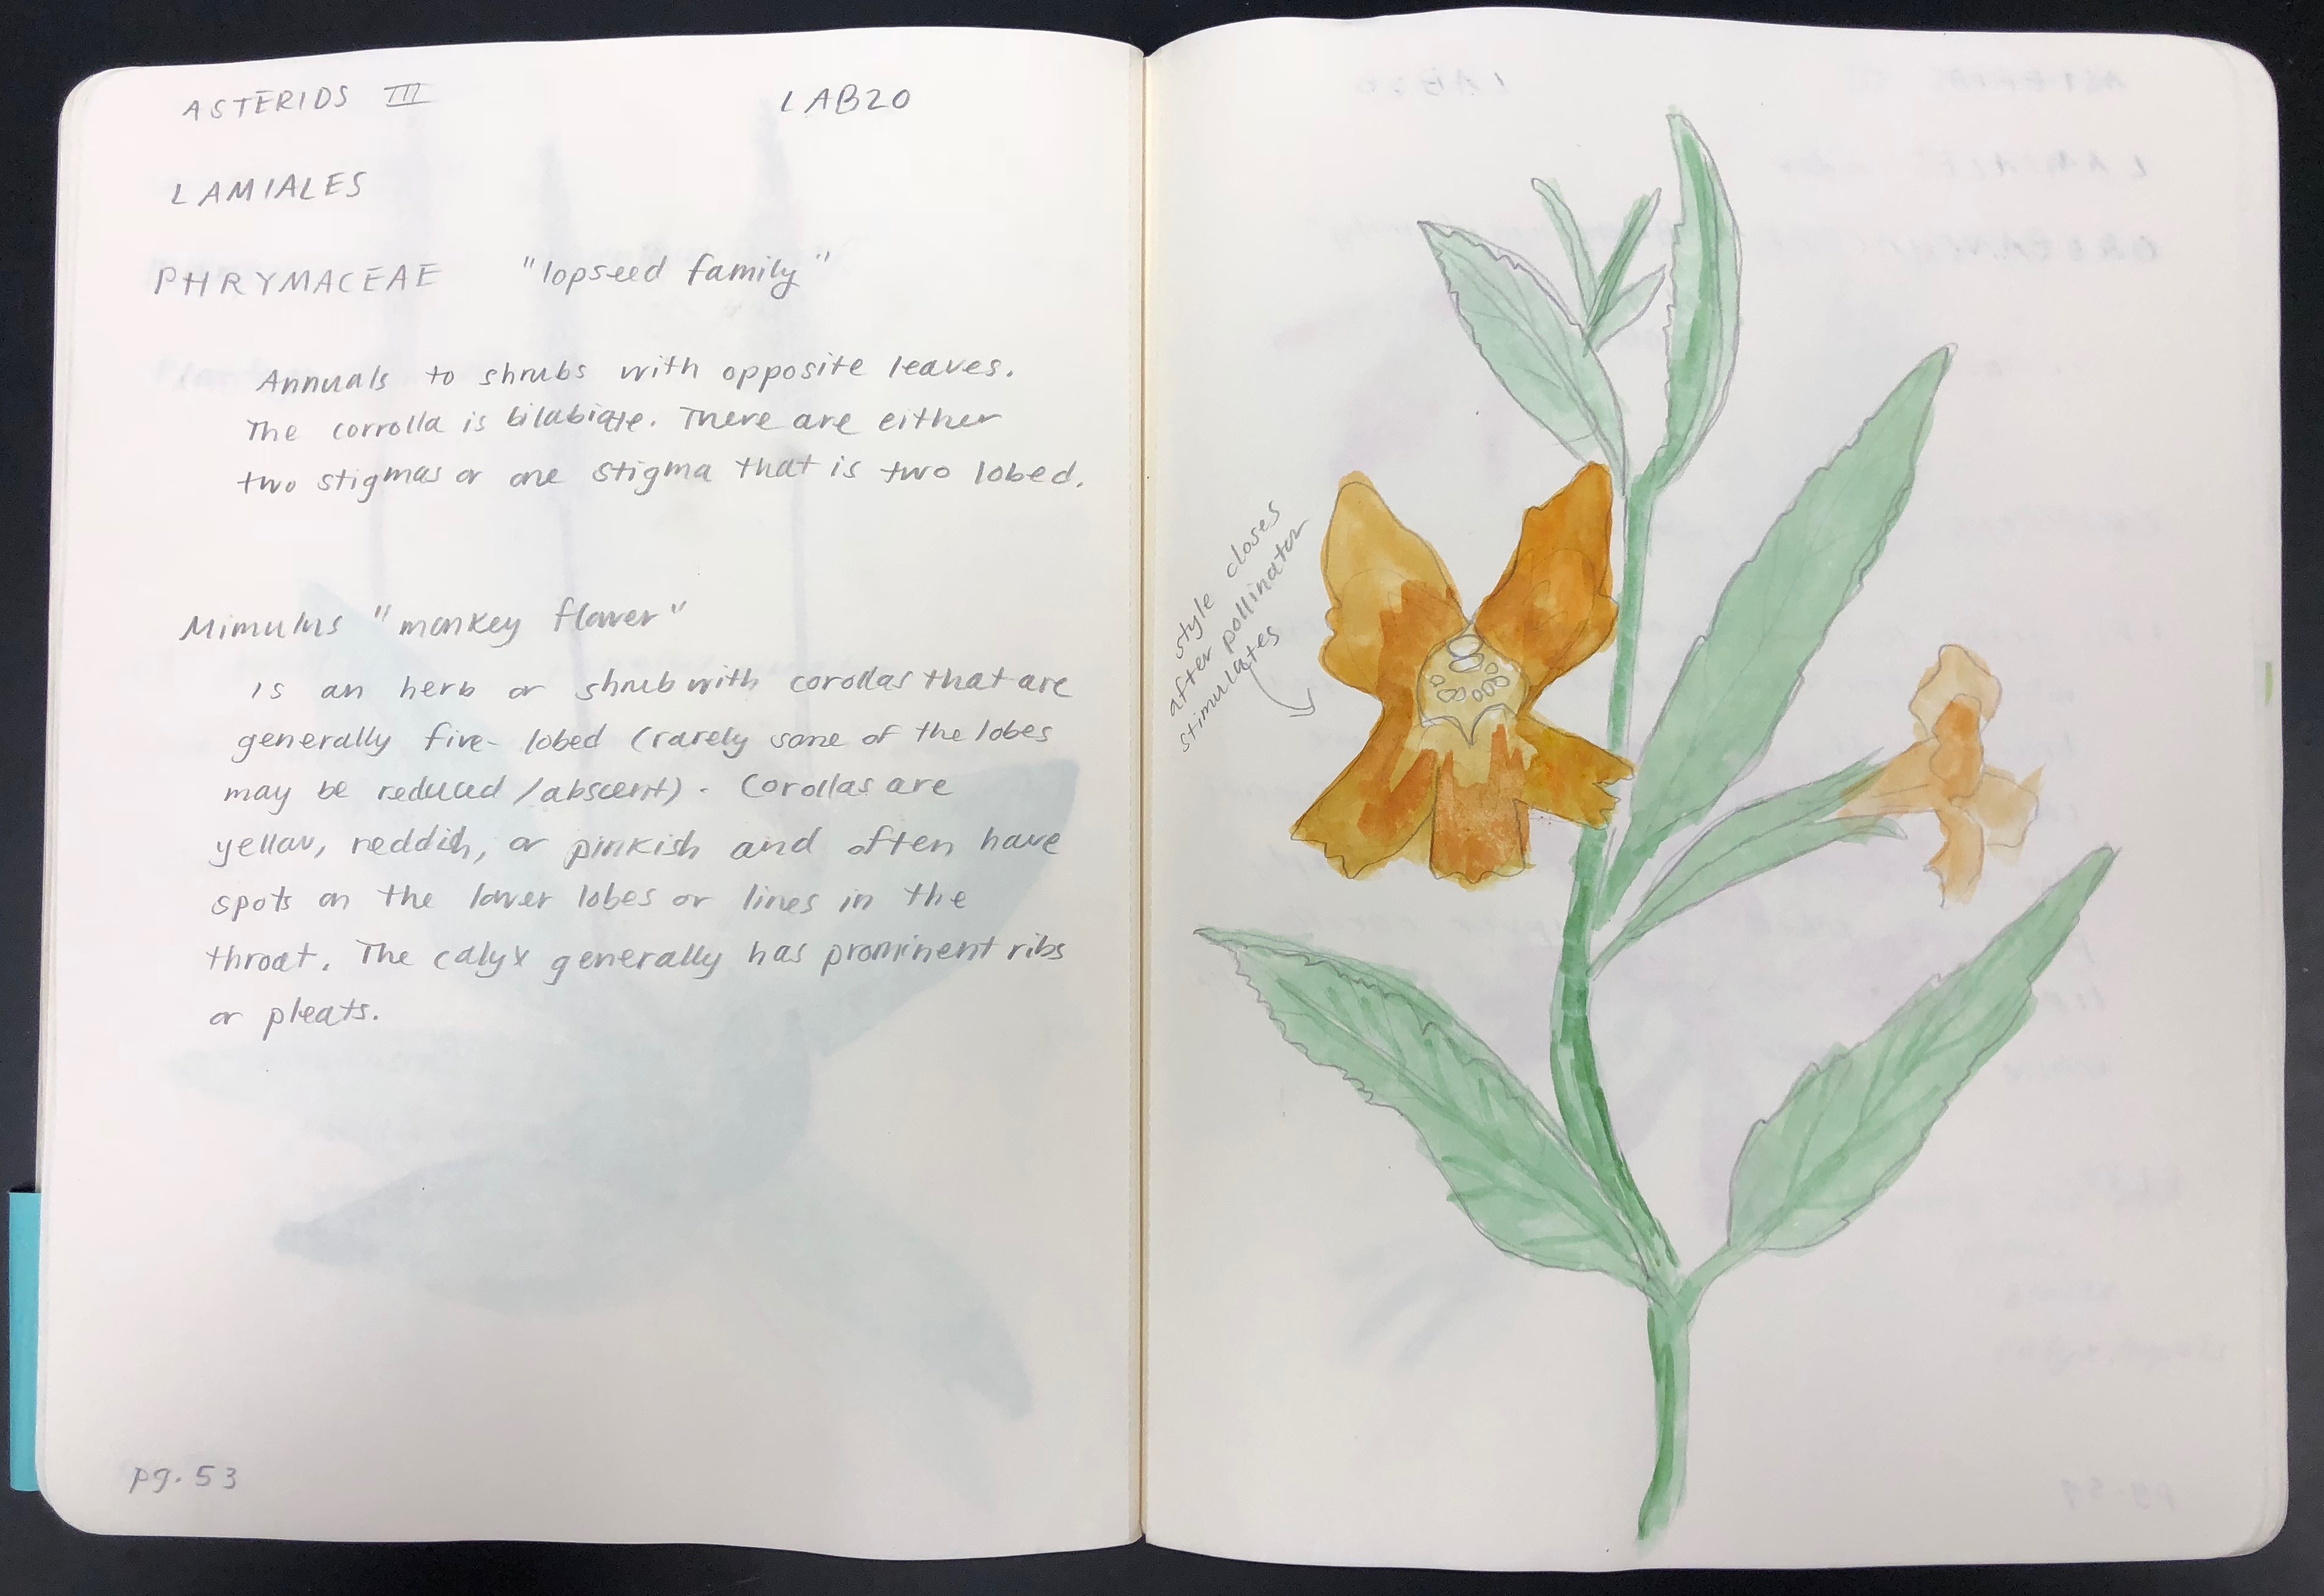 ASTERIDS III LAB20
LAMIALES
PHRYMACEAE "lopseed family"
Annuals to shrubs with opposite leaves.
The corrolla is bilabiate. There are either
two stigmas or one stigma that is two lobed.
Mimulus "monkey flower"
is an herb or shrub with corollas that are
generally five-lobed (rarely some of the lobes
may be reduced/abscent). Corollas are
yellow, reddish, or pinkish and often have
spots on the lower lobes or lines in the
throat. The calyx generally has prominent ribs
or pleats.
pg. 53
style closes
after pollinator
stimulates